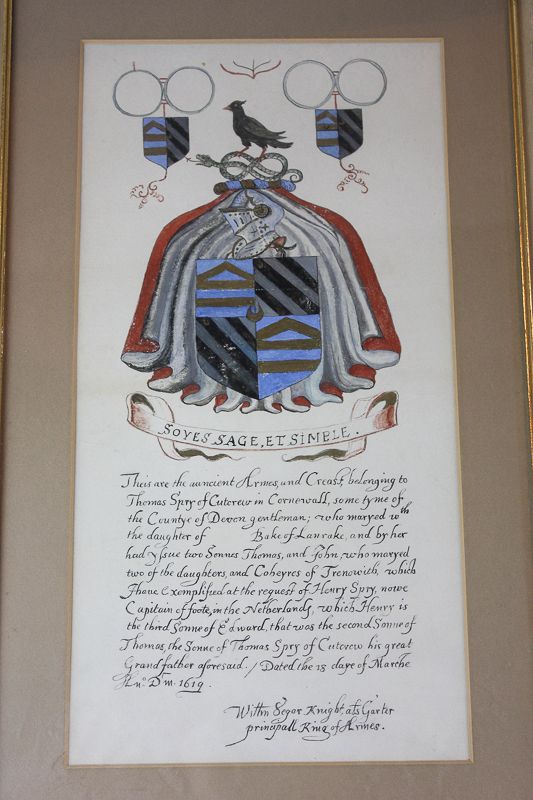 SOYES SAGE, ET SIMPLE.
Theis are the auncient Armes, and Creast, belonging to
Thomas Spry of Cutcrew in Cornewall, some tyme of
the Countye of Devon gentleman; who maryed wth
the daughter of Bake of Lanrake, and by her
had yssue two Sonnes Thomas, and John, who maryed
two of the daughters, and Coheyres of Trenowith, which
I have Exemplified at the request of Henry Spry, nowe
Capitain of foote, in the Netherlands, which Henry is
the third Sonne of Edward, that was the second Sonne of
Thomas, the Sonne of Thomas Spry of Cutcrew his great
Grandfather aforesaid. / Dated the 18 daye of Marche
Ano Dm. 1619.
Willm Segar Knight, als Garter
principall King of Armes.